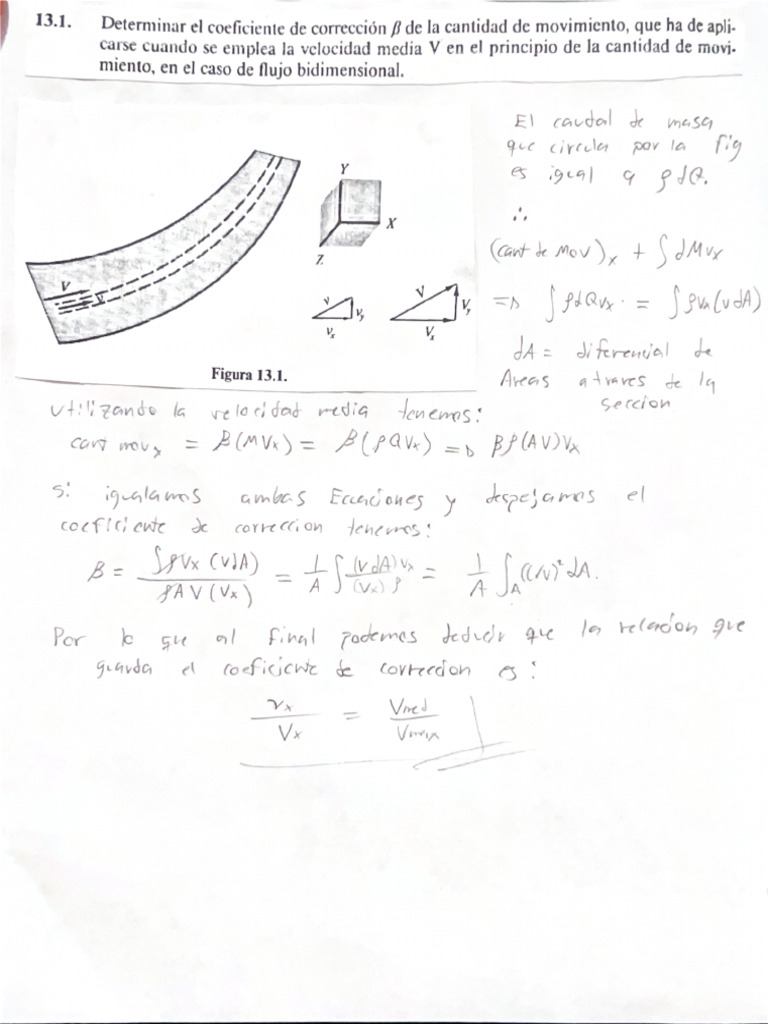 13.1. Determinar el coeficiente de corrección β de la cantidad de movimiento, que ha de apli-
carse cuando se emplea la velocidad media V en el principio de la cantidad de movi-
miento, en el caso de flujo bidimensional.
El caudal de masa
que circula por la fig
es igual a ρdQ.
∴
(cant de Mov)x + ∫dMvx
=> ∫ρdQvx. = ∫ρvx(vdA)
dA = diferencial de
Areas a traves de la
seccion
Y
X
Z
V
v
v
vy
vx
V
Vy
Vx
Figura 13.1.
Utilizando la velocidad media tenemos:
cant movx = β(MVx) = β(ρQVx) => βρ(AV)Vx
Si igualamos ambas Ecuaciones y despejamos el
coeficiente de correccion tenemos:
β = ∫ρVx (vdA) / ρAV(Vx) = 1/A ∫ (vdA)vx / (Vx)ρ = 1/A ∫A (v/V)² dA.
Por lo que al final podemos deducir que la relacion que
guarda el coeficiente de correccion es:
vx / Vx = Vmed / Vmax